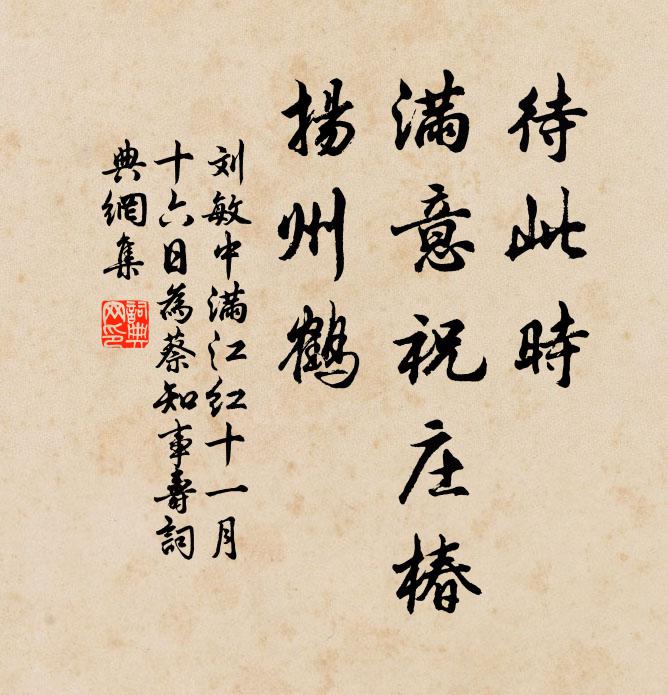 待此時
滿意祝庄椿
揚州鶴
刘敏中滿江红十一月
十六日為蔡知事壽詞
典網集
詞典
网印